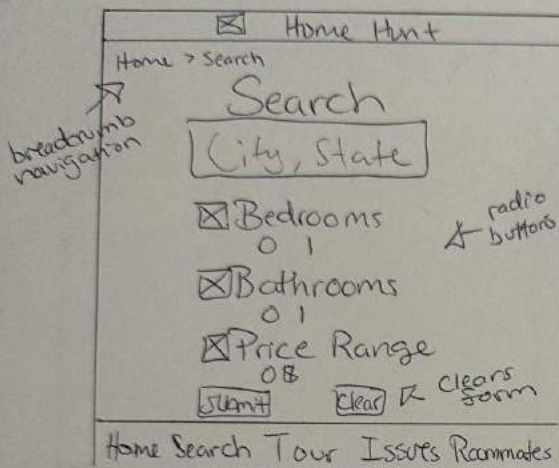 Home Hunt
Home > Search
breadcrumb
navigation
Search
City, State
Bedrooms
0 1
radio
buttons
Bathrooms
0 1
Price Range
0 $
Submit
Clear
Clears
form
Home Search Tour Issues Roommates